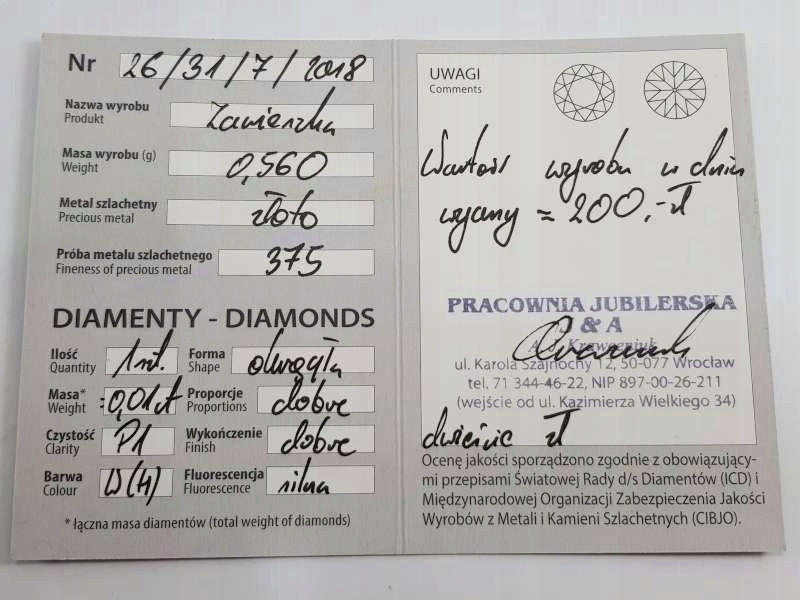 Nr 26/31/7/2018
Nazwa wyrobu Zawieszka
Produkt
Masa wyrobu (g) 0,560
Weight
Metal szlachetny złoto
Precious metal
Próba metalu szlachetnego 375
Fineness of precious metal
DIAMENTY - DIAMONDS
Ilość 1szt. Forma okrągła
Quantity Shape
Masa* 0,01ct Proporcje dobre
Weight Proportions
Czystość P1 Wykończenie dobre
Clarity Finish
Barwa W(H) Fluorescencja silna
Colour Fluorescence
* łączna masa diamentów (total weight of diamonds)
UWAGI
Comments
Wartość wyrobu w dniu
wyceny = 200,- zł
PRACOWNIA JUBILERSKA
J & A
A. J. Krawczniuk
ul. Karola Szajnochy 12, 50-077 Wrocław
tel. 71 344-46-22, NIP 897-00-26-211
(wejście od ul. Kazimierza Wielkiego 34)
dwieście zł
Ocenę jakości sporządzono zgodnie z obowiązujący-
mi przepisami Światowej Rady d/s Diamentów (ICD) i
Międzynarodowej Organizacji Zabezpieczenia Jakości
Wyrobów z Metali i Kamieni Szlachetnych (CIBJO).